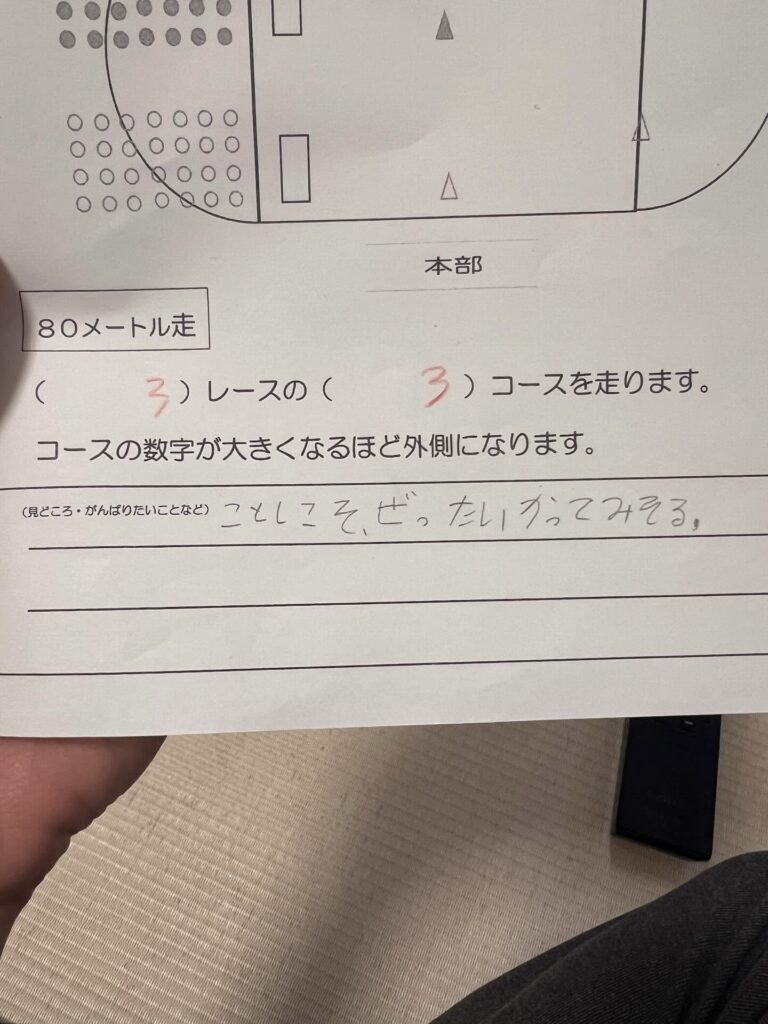 本部
80メートル走
( 3 )レースの( 3 )コースを走ります。
コースの数字が大きくなるほど外側になります。
(見どころ・がんばりたいことなど) ことしこそ、ぜったいかってみせる。